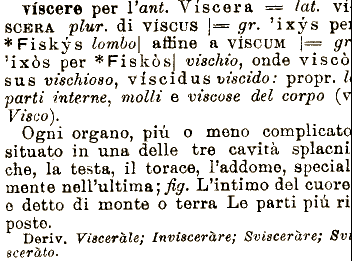 víscere per l'ant. Viscera = lat. vi
SCERA plur. di VISCUS |= gr. 'ixýs per
*Fiskýs lombo| affine a VISCUM |= gr
'ixòs per *Fiskòs| vischio, onde viscò
sus vischioso, viscidus viscido: propr. l
parti interne, molli e viscose del corpo (v
Visco).
Ogni organo, più o meno complicato
situato in una delle tre cavità splacni
che, la testa, il torace, l'addome, special
mente nell'ultima; fig. L'intimo del cuore
e detto di monte o terra Le parti più ri
poste.
Deriv. Visceràle; Invisceràre; Sviscerare; Svi
sceràto.